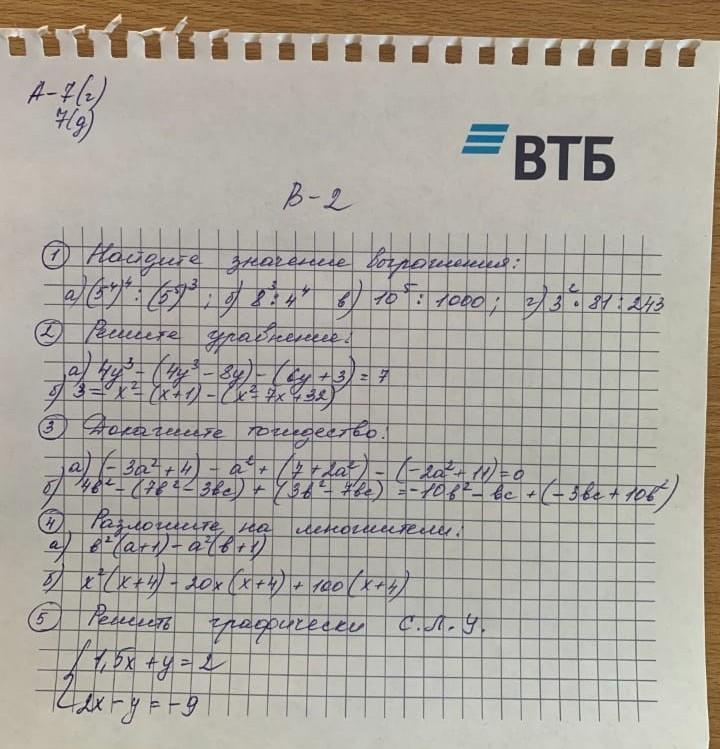 А-7(г)
7(д)
ВТБ
В-2
① Найдите значение выражения:
а) (5⁴)⁴ : (5⁵)³ ; б) 8³ : 4⁴ в) 10⁵ : 1000 ; г) 3² · 81 : 243
② Решите уравнение:
а) 4y³ - (4y³ - 8y) - (6y + 3) = 7
б) 3 = x² - (x+1) - (x² - 7x + 32)
③ Докажите тождество:
а) (-3a² + 4) - a² + (7 + 2a²) - (-2a² + 11) = 0
б) 4b² - (7b² - 3bc) + (3b² - 7bc) = -10b² - bc + (-3bc + 10b²)
④ Разложите на множители:
а) b²(a+1) - a²(b+1)
б) x²(x+4) - 20x(x+4) + 100(x+4)
⑤ Решить графически С.Л.У.
{ 1,5x + y = 2
2x - y = -9